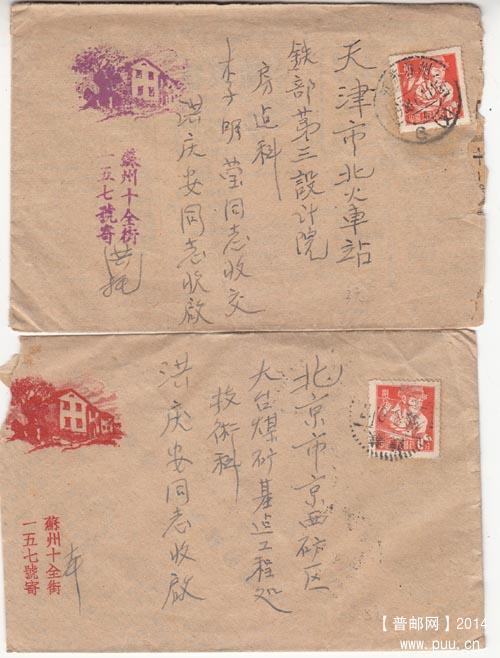 天津市北火車站
铁部第三設計院
房建科
李明莹同志收交
洪庆安同志收啟
蘇州十全街
一五七號寄
北京市京西矿区
大台煤矿基建工程处
技術科
洪庆安同志收啟
蘇州十全街
一五七號寄
【普邮网】2014
www.puu.cn